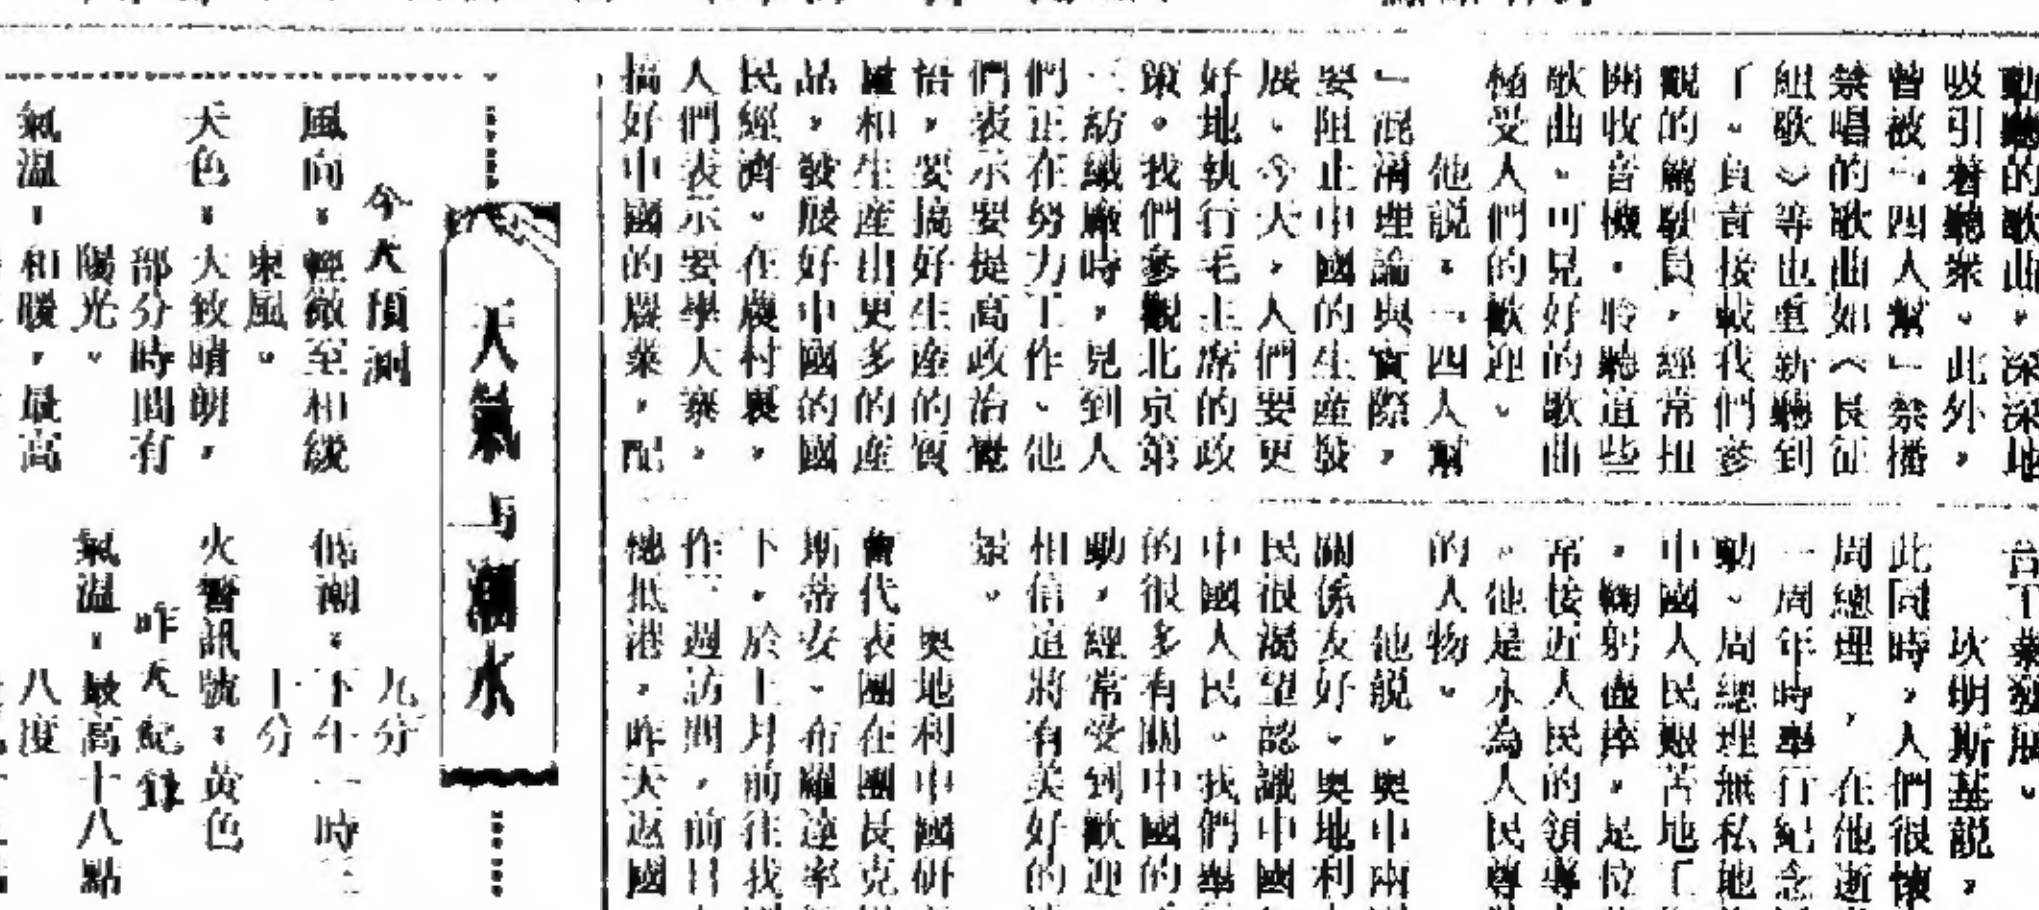 動聽的歌曲，深深地
吸引着聽衆。此外，
曾被「四人幫」禁播
禁唱的歌曲如《長征
組歌》等也重新聽到
了。負責接載我們參
觀的駕駛員，經常扭
開收音機，聆聽這些
歌曲。可見好的歌曲
極受人們的歡迎。
他説：「四人幫
」混淆理論與實際，
要阻止中國的生產發
展。今天，人們要更
好地執行毛主席的政
策。我們參觀北京第
三紡織廠時，見到人
們正在努力工作。他
們表示要提高政治覺
悟，要搞好生産的質
量和生産出更多的産
品，發展好中國的國
民經濟。在農村裏，
人們表示要學大寨，
搞好中國的農業，配
台下葉發展。
坎明斯基説，
此同時，人們很懷
周總理，在他逝
一周年時舉行紀念
動。周總理無私地
中國人民艱苦地「
，鞠躬盡瘁，是位
常接近人民的領導
。他是永為人民尊
的人物。
他說，奧中兩
關係友好。奧地利
民很渴望認識中國
中國人民。我們舉
的很多有關中國的
動，經常受到歡迎
相信這將有美好的
景。
奧地利中國研
會代表團在團長克
斯蒂安。布羅達率
下，於上月前往我
作三週訪問，前日
穗抵港，昨天返國
天氣与潮水
今天預測
風向：輕微至和緩
東風。
天色：大致晴朗，
部分時間有
陽光。
氣温：和暖，最高
九分
低潮：下午一時三
十分
火警訊號：黃色
昨天紀錄
氣温：最高十八點
八度